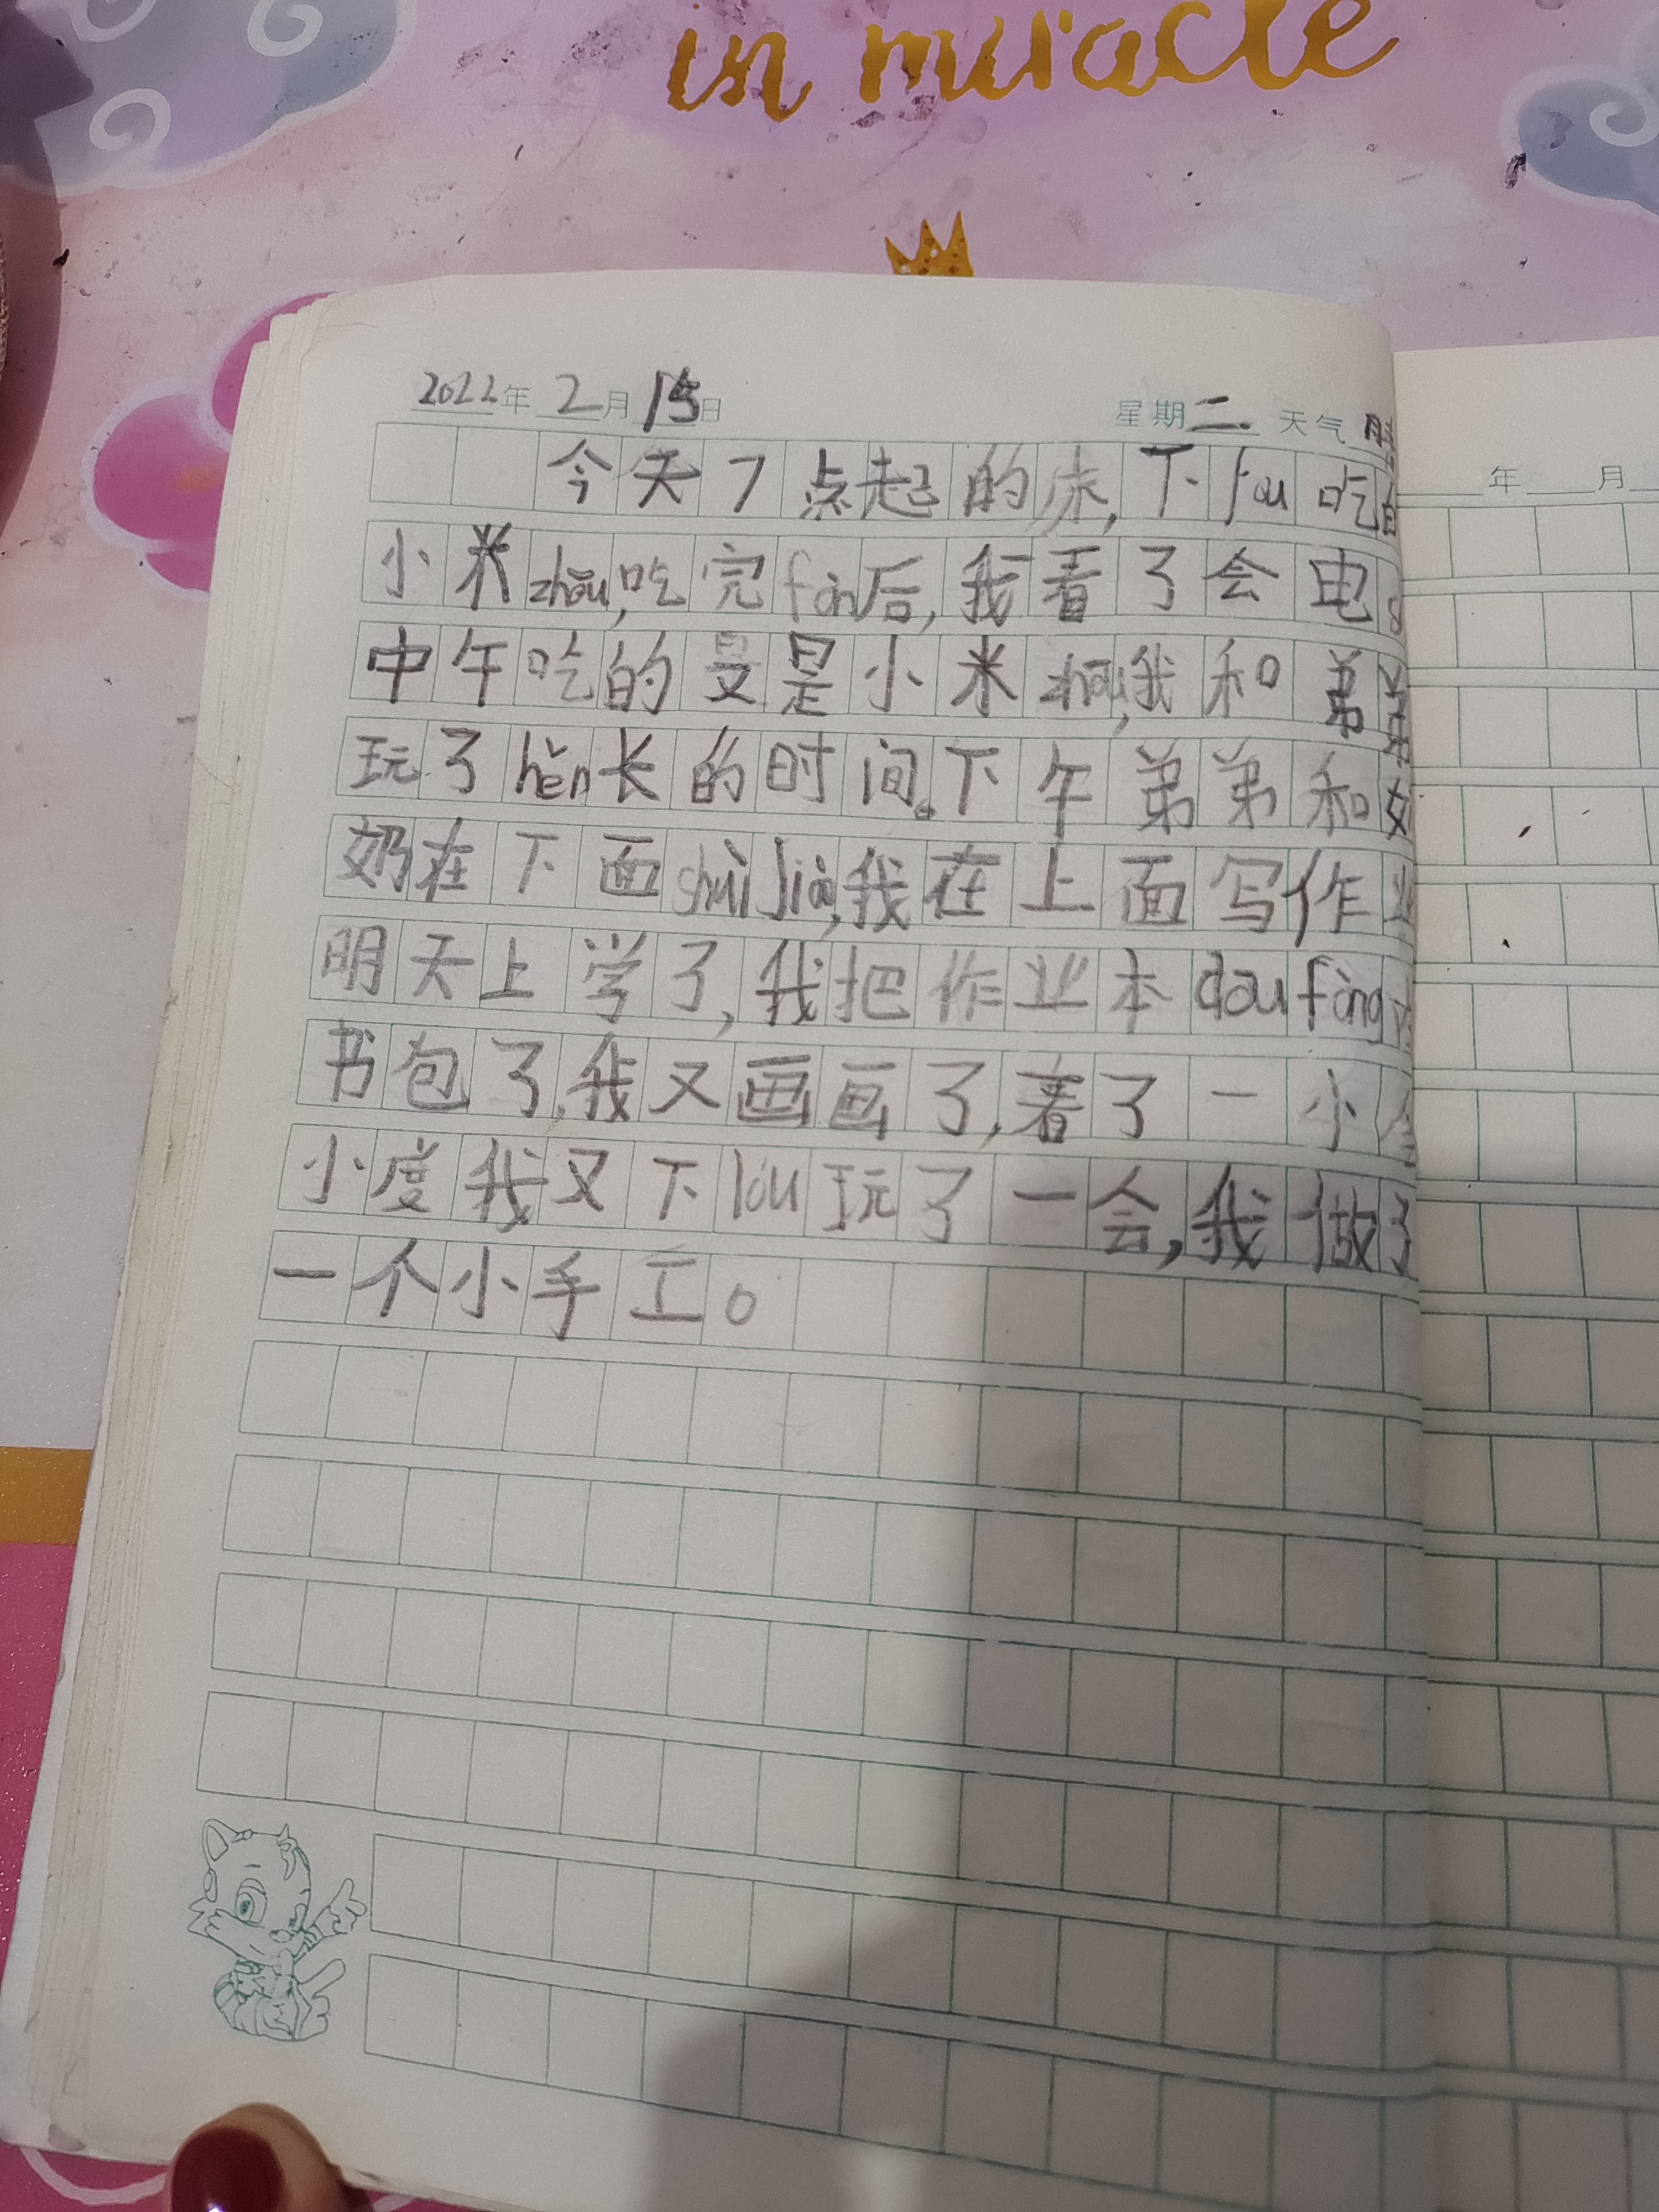 in miracle
2022年 2月 15日 星期二 天气
年 月
今天7点起的床,下lóu吃
小米zhōu,吃完fàn后,我看了会电
中午吃的是小米zhōu,我和弟
玩了hěn长的时间。下午弟弟和
奶在下面shuì jiào,我在上面写作业
明天上学了,我把作业本dōu fàng
书包了,我又画画了,看了一小
小度我又下lóu玩了一会,我做了
一个小手工。